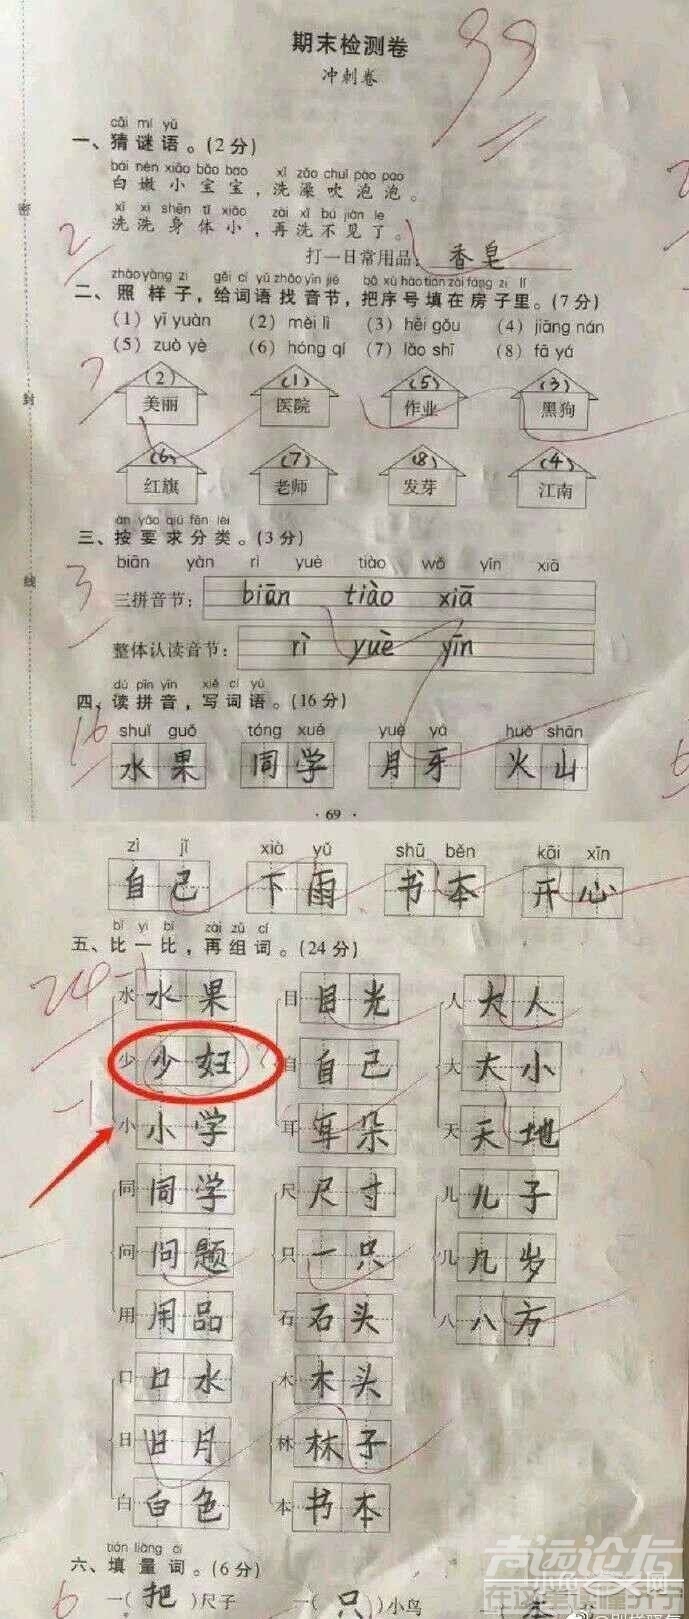 期末检测卷
99
冲刺卷
cāi mí yǔ
一、猜谜语。(2分)
bái nèn xiǎo bǎo bao xǐ zǎo chuī pào pao
白嫩小宝宝,洗澡吹泡泡。
xǐ xi shēn tǐ xiǎo zài xǐ bú jiàn le
洗洗身体小,再洗不见了。
2
打一日常用品: 香皂
zhào yàng zi gěi cí yǔ zhǎo yīn jié bǎ xù hào tián zài fáng zi lǐ
二、照样子,给词语找音节,把序号填在房子里。(7分)
(1) yī yuàn (2) měi lì (3) hēi gǒu (4) jiāng nán
(5) zuò yè (6) hóng qí (7) lǎo shī (8) fā yá
7
(2) (1) (5) (3)
美丽 医院 作业 黑狗
(6) (7) (8) (4)
红旗 老师 发芽 江南
àn yāo qiú fēn lèi
三、按要求分类。(3分)
biān yàn rì yuè tiào wǒ yīn xiā
3
三拼音节: biān tiào xiā
整体认读音节: rì yuè yīn
dú pīn yīn xiě cí yǔ
四、读拼音,写词语。(16分)
16
shuǐ guǒ tóng xué yuè yá huǒ shān
水果 同学 月牙 火山
· 69 ·
密
封
线
zì jǐ xià yǔ shū běn kāi xīn
自己 下雨 书本 开心
bǐ yì bǐ zài zǔ cí
五、比一比,再组词。(24分)
24-1
水 水果 目 目光 人 大人
少 少妇 自 自己 大 大小
-1
小 小学 耳 耳朵 天 天地
同 同学 尺 尺寸 儿 儿子
问 问题 只 一只 几 几岁
用 用品 石 石头 八 八方
口 口水 木 木头
日 旧月 林 林子
白 白色 本 书本
tián liàng cí
六、填量词。(6分)
6
一(把)尺子 一(只)小鸟